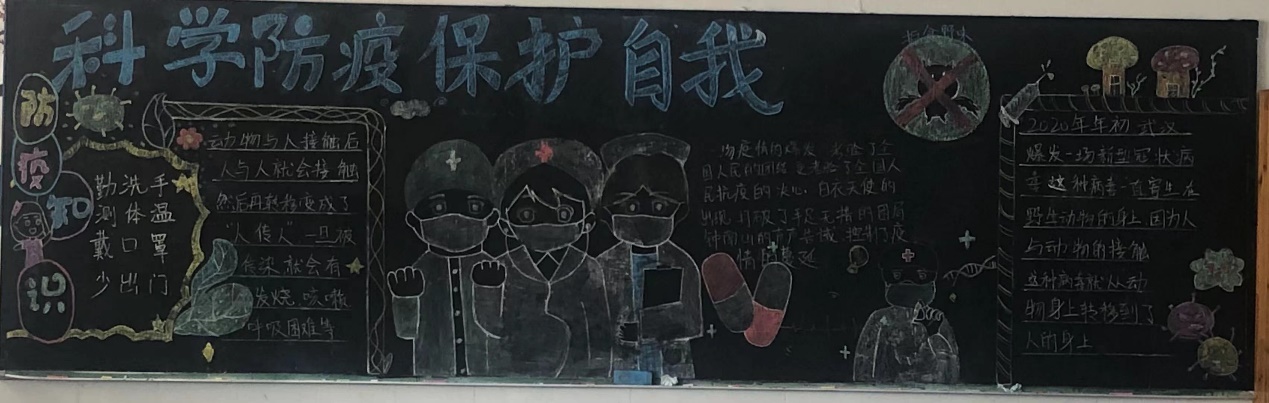 科学防疫保护自我
防疫知识
勤洗手
测体温
戴口罩
少出门
动物与人接触后
人与人就会接触
然后再就转变成了
"人传人"一旦被
传染就会有
发烧 咳嗽
呼吸困难等
一场疫情的爆发 考验了全
国人民的团结 更考验了全国人
民抗疫的决心 白衣天使的
出现 打破了手足无措的困局
钟南山的 控制了疫
情的蔓延
拒食野味
2020年年初 武汉
爆发一场新型冠状病
毒 这种病毒一直寄生在
野生动物的身上 因为人
与动物的接触
这种病毒就从动
物身上转移到了
人的身上